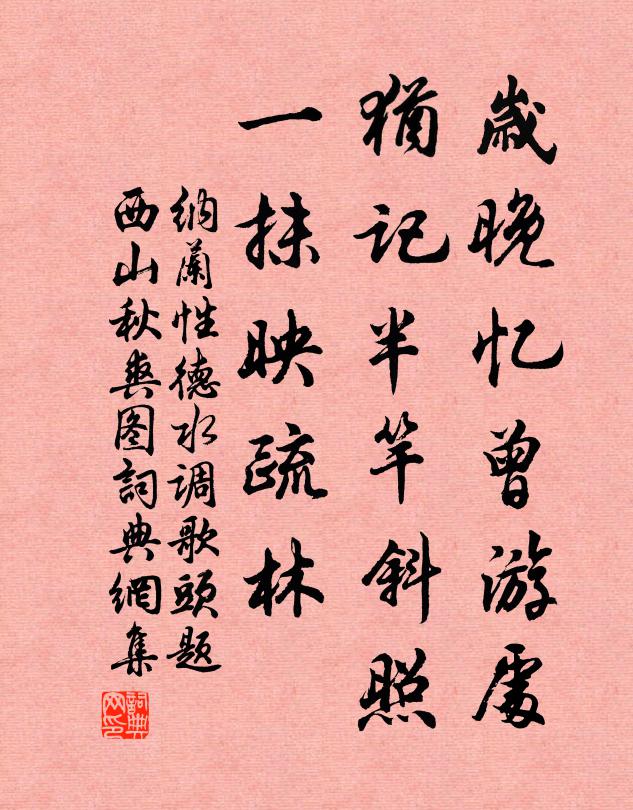 歲晚忆曾游處
猶記半竿斜照
一抹映疏林
纳蘭性德水调歌頭题
西山秋爽图詞典網集
詞典网印